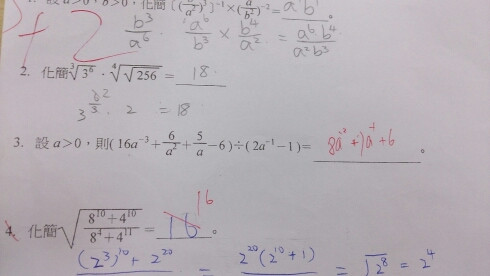 1. 設 a>0,b>0,化簡 [(b/a²)³]⁻¹×(a/b²)⁻²= a⁴b¹。
+2
b³/a⁶ a⁶/b³ × b⁴/a² = a⁶b⁴/a²b³
2. 化簡 ∛3⁶ · ∜√256 = 18
3^(6/3) · 2 = 18
3. 設 a>0,則(16a⁻³+6/a²+5/a−6)÷(2a⁻¹−1)= 。
16
4. 化簡 √((8¹⁰+4¹⁰)/(8⁴+4¹¹)) = 16。
(2³)¹⁰+2²⁰ = 2²⁰(2¹⁰+1) = √2⁸ = 2⁴